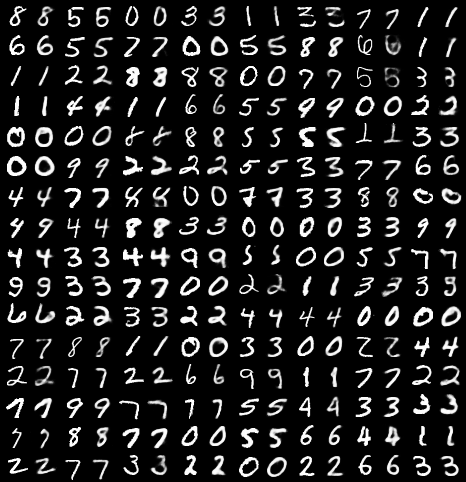 8 8 5 5 0 0 3 3 1 1 3 3 7 7 1 1
6 6 5 5 7 7 0 0 5 5 8 8 6 1 1
1 1 2 2 8 8 8 8 0 0 7 7 5 5 3 3
1 1 4 4 1 1 6 6 5 5 9 9 0 0 2 2
0 0 0 0 8 8 8 8 5 5 5 5 1 1 3 3
0 0 9 9 2 2 2 2 5 5 3 3 7 7 6 6
4 4 7 7 8 8 0 0 7 7 3 3 8 8 0 0
4 9 4 4 8 8 3 3 0 0 0 0 3 3 9 9
4 4 3 3 4 4 9 9 5 5 0 0 5 5 7 7
9 9 3 3 7 7 0 0 2 2 1 1 3 3 3 9
6 6 2 2 3 3 2 2 4 4 4 4 0 0 0 0
7 7 8 8 1 1 0 0 3 3 0 0 2 2 4 4
2 2 7 7 2 2 6 6 9 9 1 1 7 7 2 2
7 7 9 9 7 7 7 7 5 5 4 4 3 3 3 3
7 7 8 8 7 7 0 0 5 5 6 6 4 4 1 1
2 2 7 7 3 3 2 2 0 0 2 2 6 6 3 3